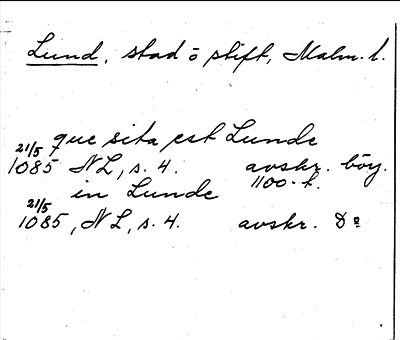 Lund, stad o stift, Malm. l.
que sita est Lunde
21/5 1085 NL, s. 4. avskr. börj. 1100-t.
in Lunde
21/5 1085, NL, s. 4. avskr. Do